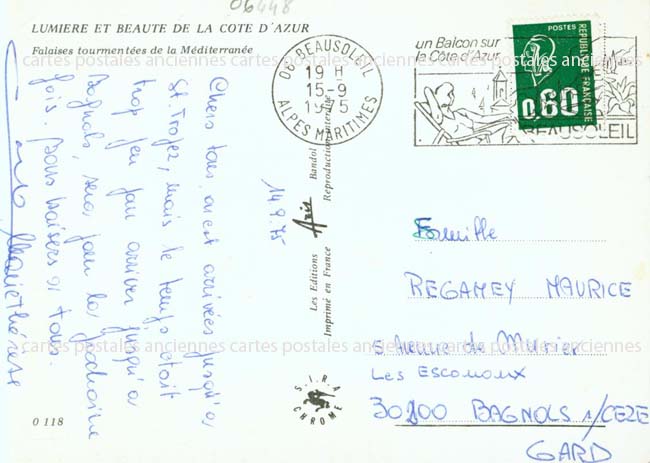 06448
LUMIERE ET BEAUTE DE LA COTE D'AZUR
Falaises tourmentées de la Méditerranée
Chers tous, on est arrivées jusqu'à
St. Tropez, mais le temps était
trop peu pour arriver jusqu'à
Bagnols, sera pour la prochaine
fois. Bons baisers à tous.
Marie Thérèse
14.9.75
0 118
Les Editions Aris Bandol
Imprimé en France Reproduction interdite
S.I.R.A.
CHROME
06 BEAUSOLEIL
19 H
15-9
1975
ALPES MARITIMES
un Balcon sur
la Côte d'Azur
BEAUSOLEIL
POSTES
REPUBLIQUE FRANÇAISE
0,60
Famille
REGAMEY MAURICE
5 Avenue de Murier
Les Esconoux
30200 BAGNOLS s/CEZE
GARD
cartes postales anciennes cartes postales anciennes cartes postales anciennes
cartes postales anciennes cartes postales anciennes cartes postales anciennes